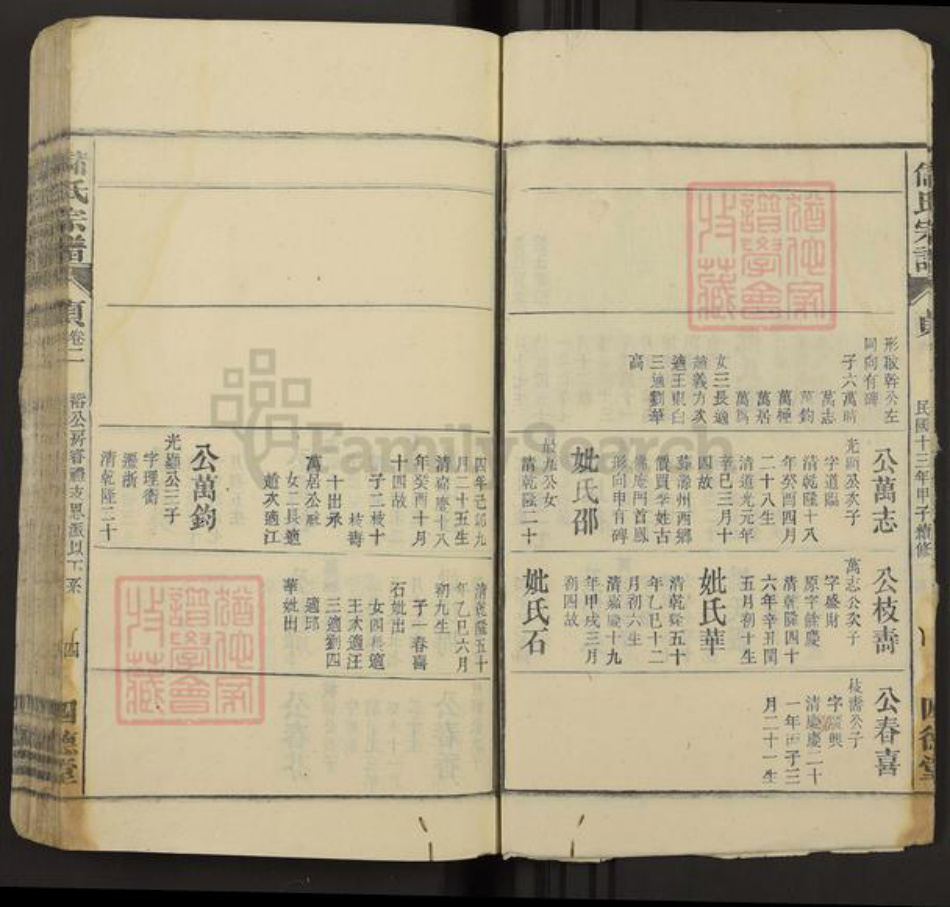 民國十三年甲子續修
形取幹公左
同向有碑
子六萬時
萬志
萬鈞
萬極
萬居
萬爲
女三長適
趙義方次
適王東白
三適劉華
高
公萬志
光顯公次子
字道臨
清乾隆十八
年癸酉四月
二十八生
清道光元年
辛巳三月十
四故
葬滁州西鄉
價買李姓古
佛庵門首鳳
形向甲有碑
妣氏邵
最九公女
清乾隆二十
四年己卯九
月二十五生
清嘉慶十八
年癸酉十月
十四故
子二枝十
枝壽
十出承
萬居公祧
女二長適
趙次適江
公萬鈞
光顯公三子
字理衡
遷浙
清乾隆二十
公枝壽
萬志公次子
字盛財
原字餘慶
清乾隆四十
六年辛丑閏
五月初十生
妣氏華
清乾隆五十
年乙巳十二
月初六生
清嘉慶十九
年甲戌三月
初四故
妣氏石
清乾隆五十
年乙巳六月
初九生
子一春喜
石妣出
女四長適
王次適汪
三適劉四
適邱
華妣出
公春喜
枝壽公子
清嘉慶二十
一年丙子三
月二十一生
儲氏宗譜
貞
卷二
裕公房睿禮支恩派以下系
四
四德堂
猶他家
譜學會
收藏
FamilySearch